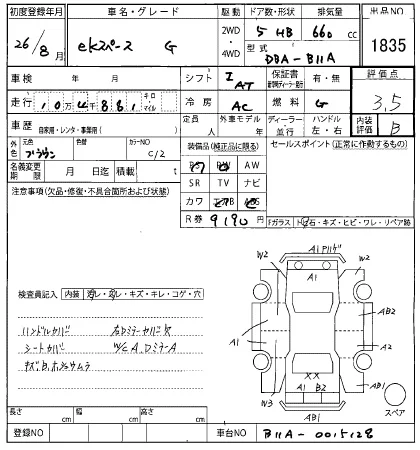 初度登録年月 車名・グレード 駆動 ドア数・形状 排気量 出品NO
26/8月 eKスペース G 2WD・4WD 5 HB 660 cc 1835
型式 DBA-B11A
車検 年 月 シフト I AT 保証書 新車時ディーラー発行 有・無 評価点
走行 10万4881 キロ マイル 冷房 AC 燃料 G 3.5
車歴 自家用・レンタ・事業用( ) 定員 人 外車モデル 年 ディーラー・並行 ハンドル 左・右 内装評価 B
外色 元色 ブラウン 色替 カラーNO C/2 装備品(純正品に限る) セールスポイント(正常に作動するもの)
PS PW AW
名義変更期限 月 日迄 積載 t SR TV ナビ
注意事項(欠品・修復・不具合箇所および状態) カワ エアB ABS
R券 9190 円 Fガラス ト石・キズ・ヒビ・ワレ・リペア跡
検査員記入 内装 汚レ・スレ・キズ・キレ・コゲ・穴
ハンドルカバー 右Dミラーカバー欠
シートカバー W/C A、DミラーA
キズB、ホショサムラ
A1 Rハゲ
W2
A1
W2
A1
AB2
A2
XX
W3
A1 B2
AB1
AB1
スペア
長さ cm 幅 cm 高さ cm
登録NO 車台NO B11A-0015128